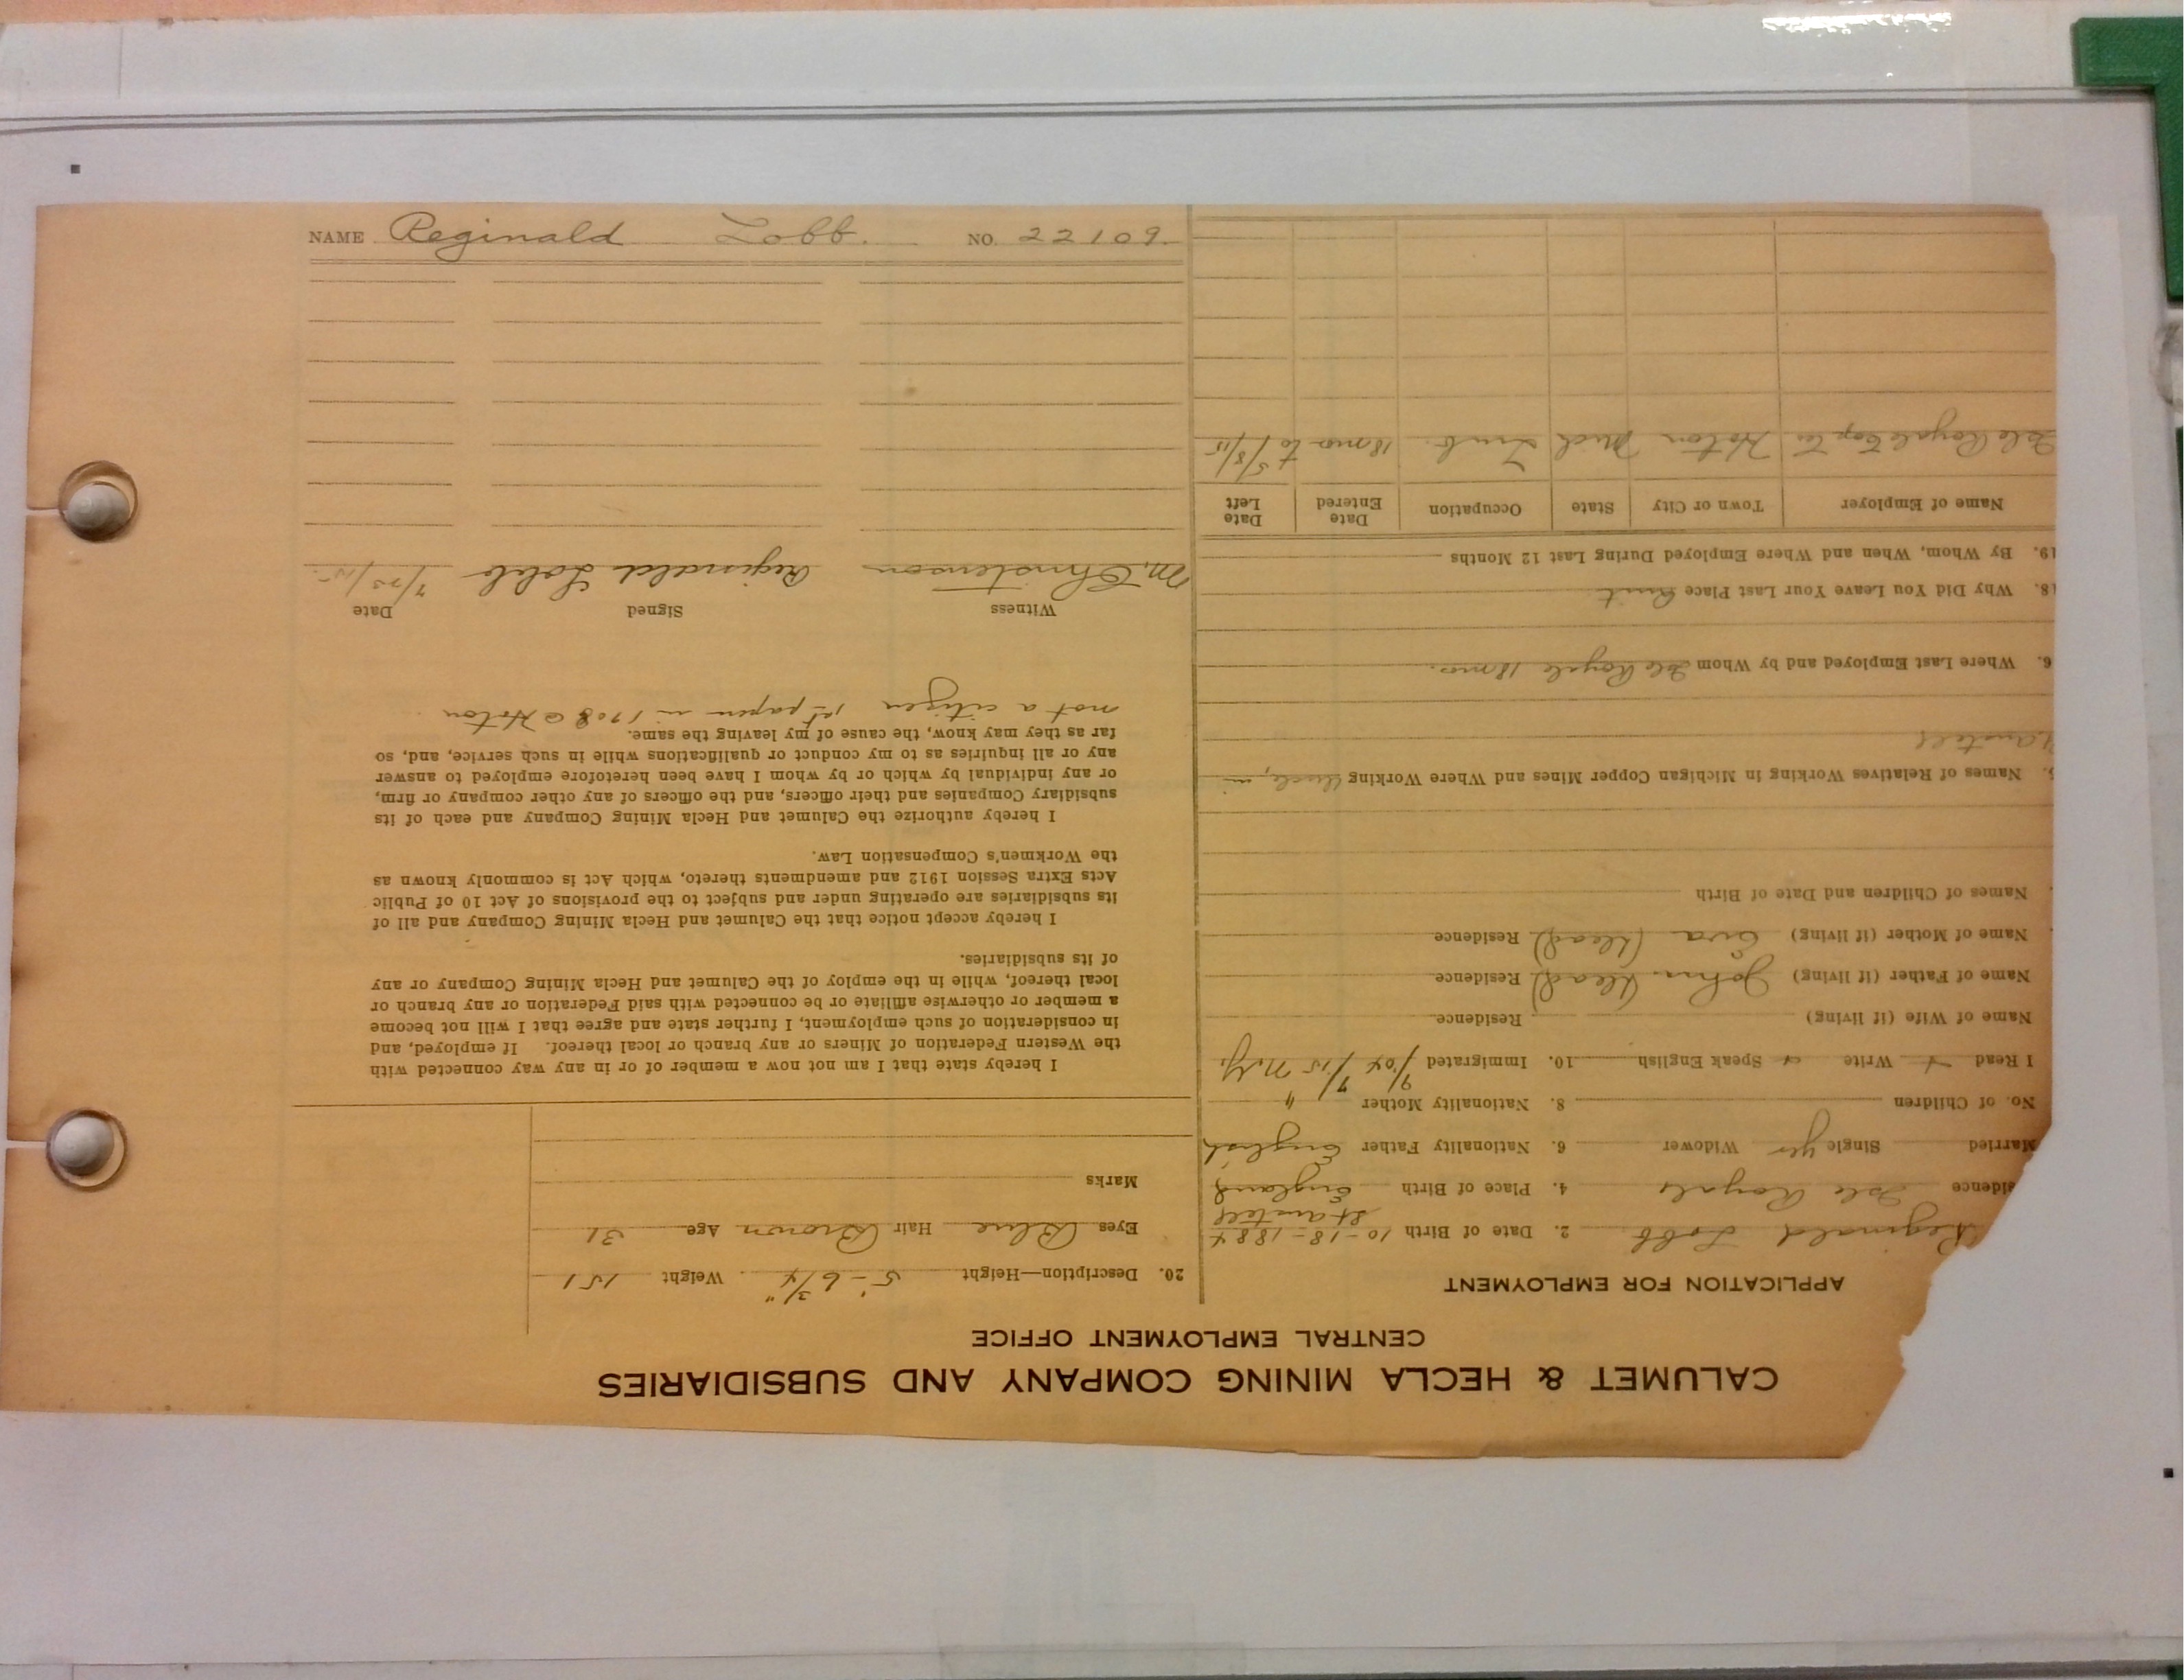 CALUMET & HECLA MINING COMPANY AND SUBSIDIARIES
CENTRAL EMPLOYMENT OFFICE
APPLICATION FOR EMPLOYMENT
Reginald Lobb 2. Date of Birth 10-18-1884
St austell
sidence Isle Royale 4. Place of Birth England
Married Single yes Widower 6. Nationality Father English
No. of Children 8. Nationality Mother "
I Read Write Speak English 10. Immigrated N.Y.
Name of Wife (if living) Residence
Name of Father (if living) John (dead) Residence
Name of Mother (if living) Eva (dead) Residence
Names of Children and Date of Birth
Names of Relatives Working in Michigan Copper Mines and Where Working Uncle, in
6. Where Last Employed and by Whom Isle Royale 18 mo.
18. Why Did You Leave Your Last Place Quit
19. By Whom, When and Where Employed During Last 12 Months
Name of Employer Town or City State Occupation Date Entered Date Left
Isle Royale Cop Co Hoton Mich 18 mo to 5/8/15
20. Description—Height 5'-6 3/4" Weight 151
Eyes Blue Hair Brown Age 31
Marks
I hereby state that I am not now a member of or in any way connected with
the Western Federation of Miners or any branch or local thereof. If employed, and
in consideration of such employment, I further state and agree that I will not become
a member or otherwise affiliate or be connected with said Federation or any branch or
local thereof, while in the employ of the Calumet and Hecla Mining Company or any
of its subsidiaries.
I hereby accept notice that the Calumet and Hecla Mining Company and all of
its subsidiaries are operating under and subject to the provisions of Act 10 of Public
Acts Extra Session 1912 and amendments thereto, which Act is commonly known as
the Workmen's Compensation Law.
I hereby authorize the Calumet and Hecla Mining Company and each of its
subsidiary Companies and their officers, and the officers of any other company or firm,
or any individual by which or by whom I have been heretofore employed to answer
any or all inquiries as to my conduct or qualifications while in such service, and, so
far as they may know, the cause of my leaving the same.
not a citizen 1st papers in 1908 @ Hoton
Witness Signed Date
M. Christenson Reginald Lobb 7/23/15.
NAME Reginald Lobb. NO. 22109.